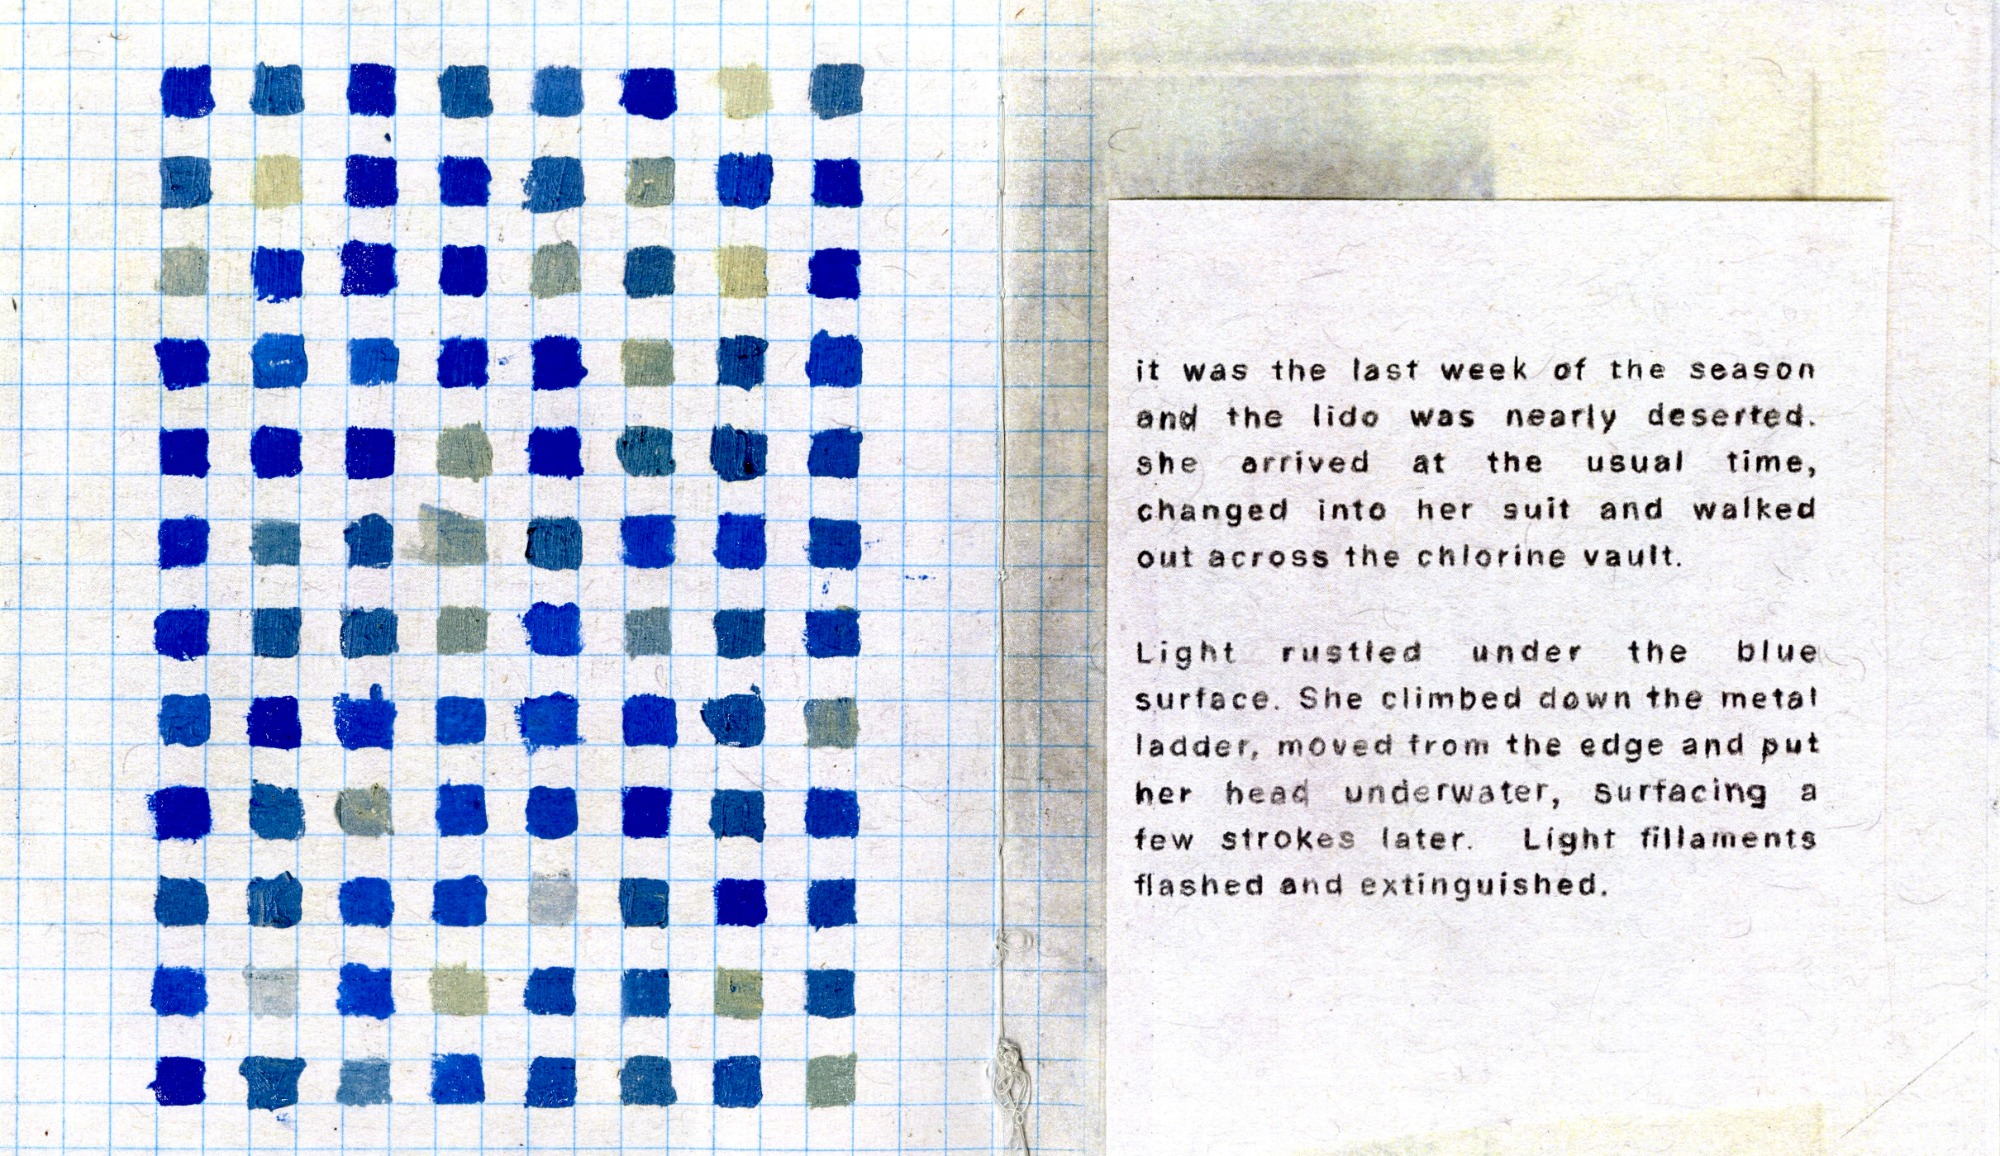 it was the last week of the season
and the lido was nearly deserted.
she arrived at the usual time,
changed into her suit and walked
out across the chlorine vault.
Light rustled under the blue
surface. She climbed down the metal
ladder, moved from the edge and put
her head underwater, surfacing a
few strokes later. Light fillaments
flashed and extinguished.